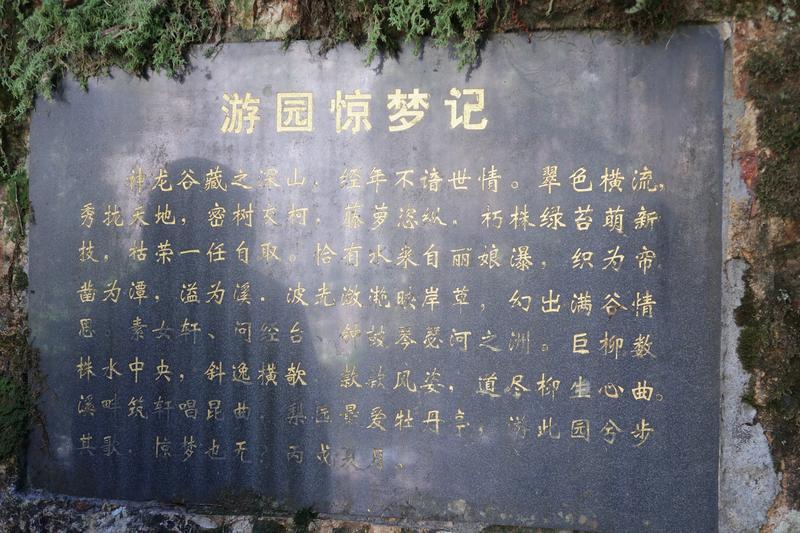 游园惊梦记
神龙谷藏之深山，经年不谙世情。翠色横流，
秀拢天地，密树交柯，藤萝恣纵，朽株绿苔萌新
技，枯荣一任自取。恰有水来自丽娘瀑，织为帘
凿为潭，溢为溪，波光潋滟映岸草，幻出满谷情
思。素女轩、问经台、钟鼓琴瑟河之洲。巨柳数
株水中央，斜逸横歌，款款风姿，道尽柳生心曲。
溪畔筑轩唱昆曲，梨园最爱牡丹亭，游此园兮步
其歌，惊梦也无？丙戌夏月。